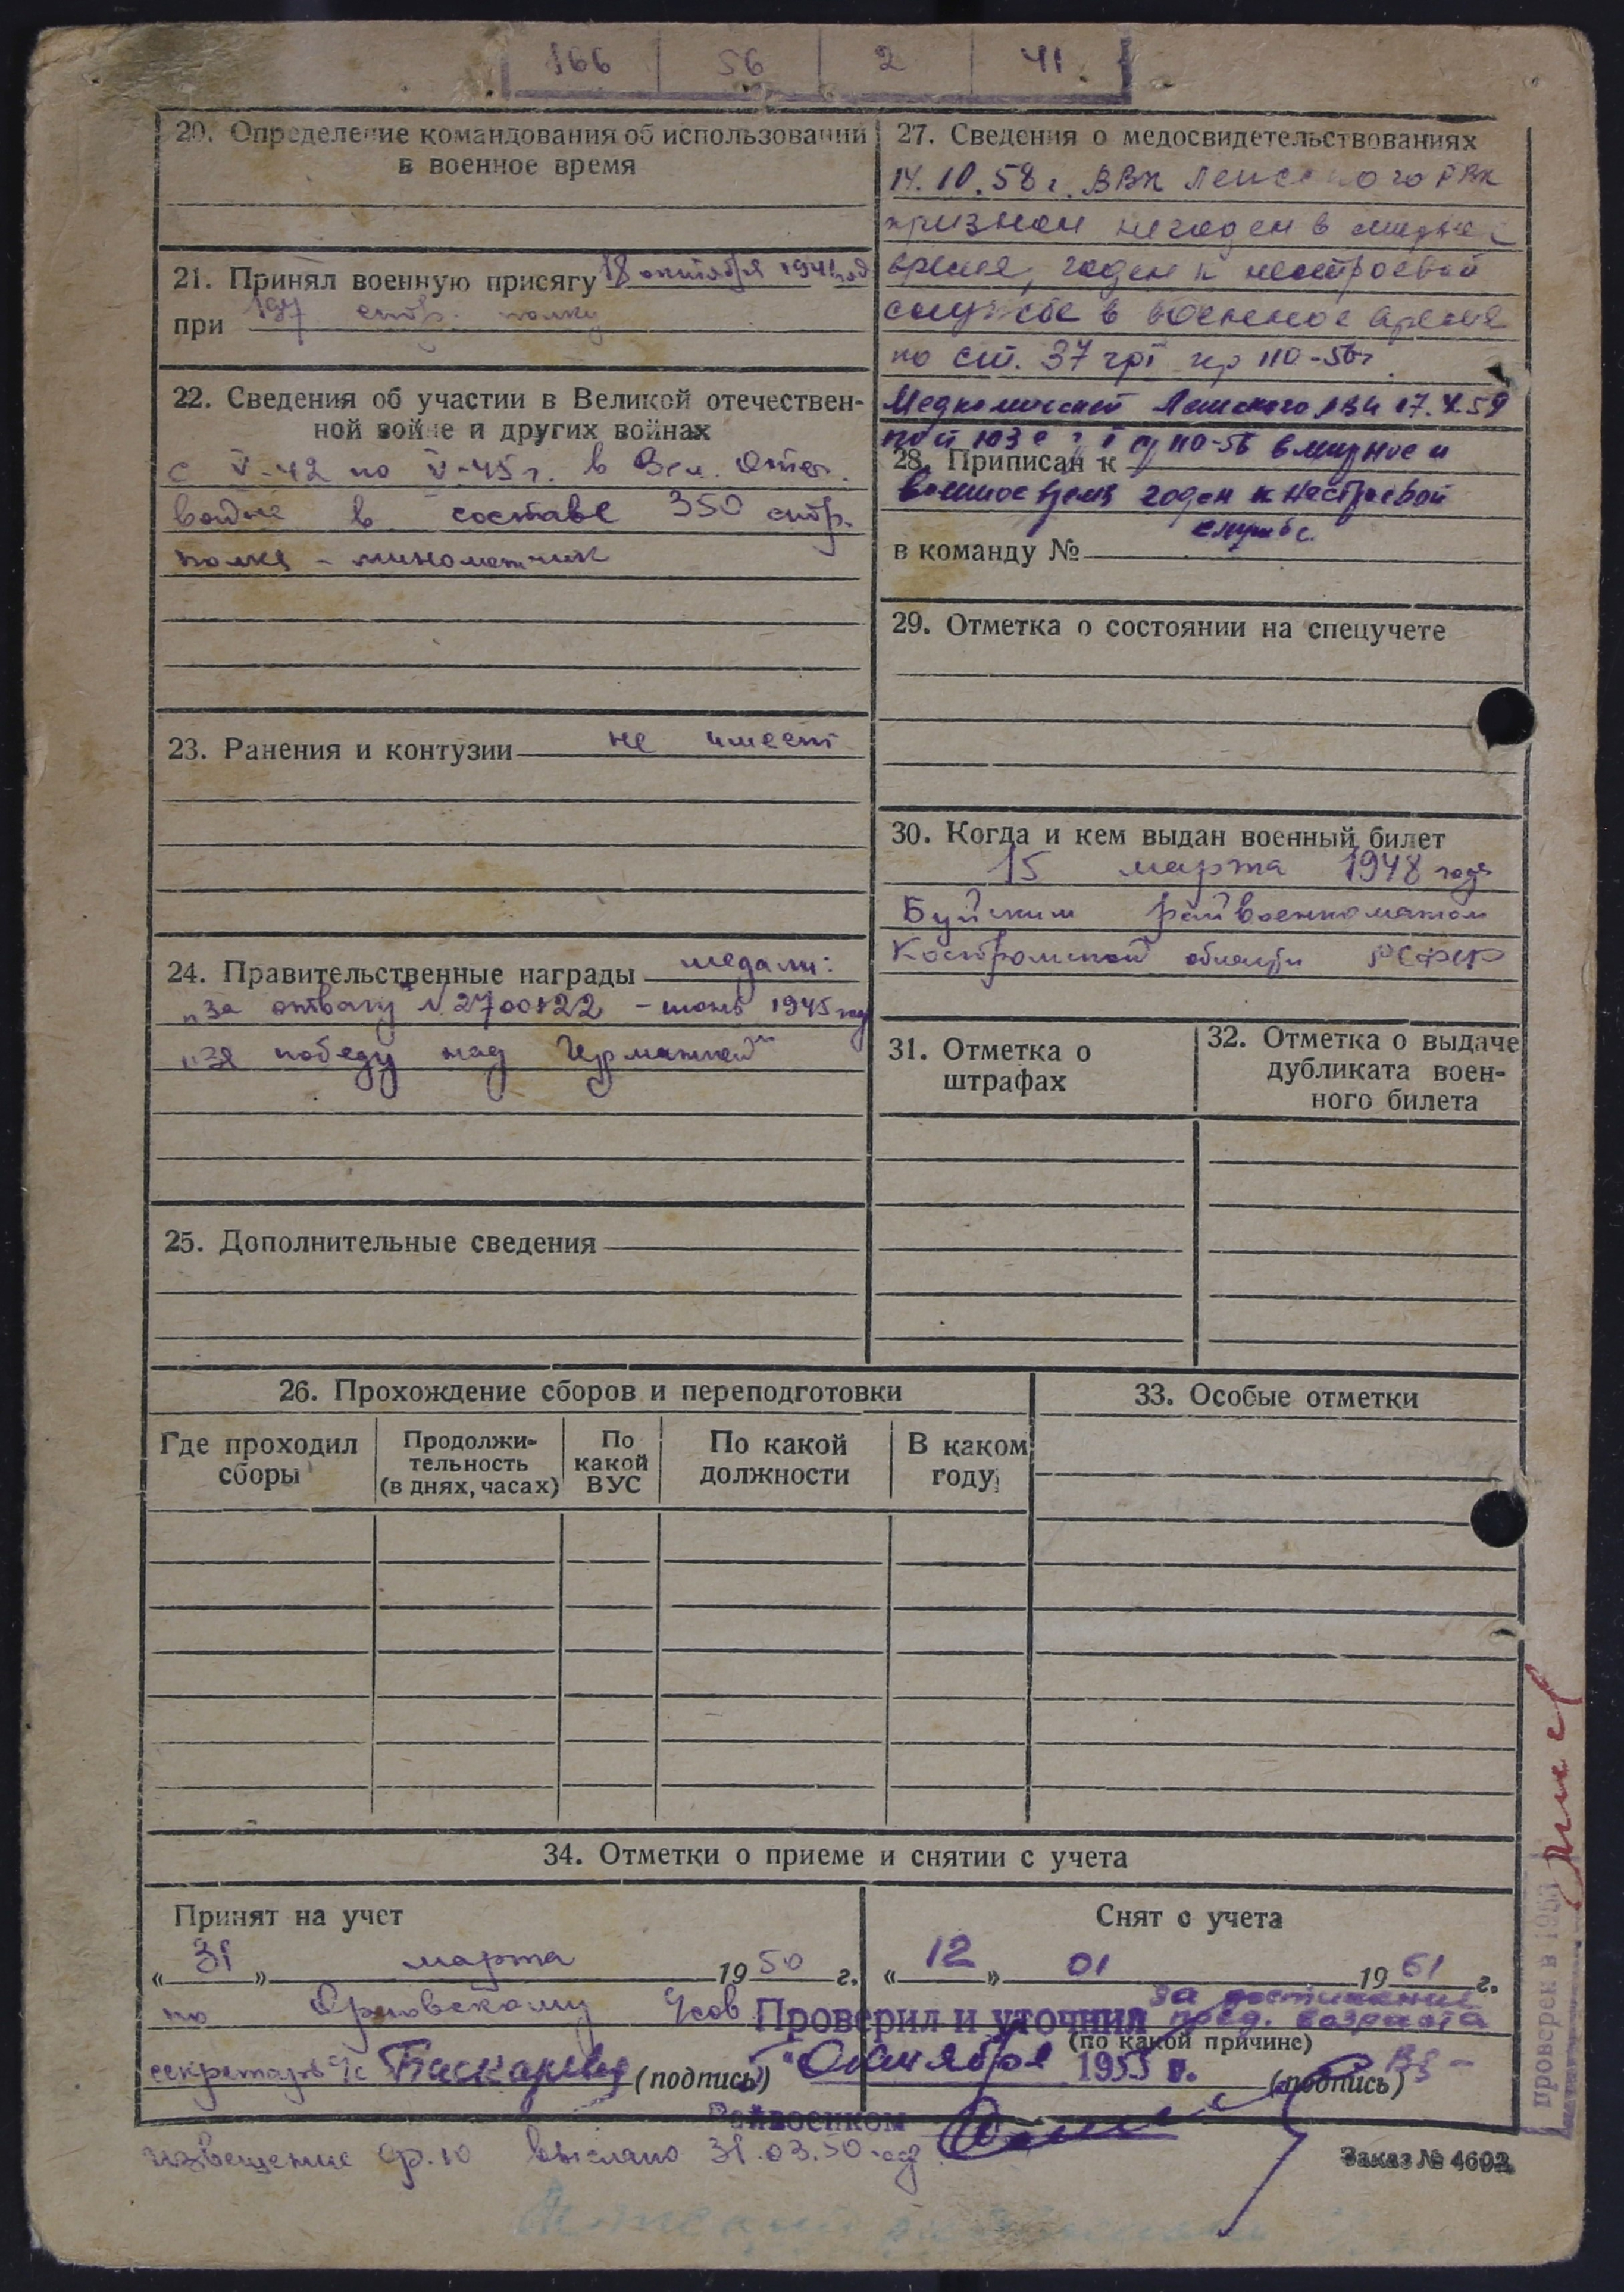 166 56 2 41
20. Определение командования об использовании
в военное время
21. Принял военную присягу 18 октября 1941 год
при 197 стр. полку
22. Сведения об участии в Великой отечествен-
ной войне и других войнах
с V-42 по V-45 г. в Вел. Отеч.
войне в составе 350 стр.
полка - минометчик
23. Ранения и контузии не имеет
24. Правительственные награды медали:
„За отвагу" № 2700822 - июнь 1945 год
„За победу над Германией"
25. Дополнительные сведения
27. Сведения о медосвидетельствованиях
14.10.58 г. ВВК Ленского РВК
признан негоден в мирное
время, годен к нестроевой
службе в военное время
по ст. 37 гр I пр 110-56г.
Медкомиссией Ленского РВК 17.X.59
110-56 в мирное и
28. Приписан к
военное время годен к нестроевой
службе.
в команду №
29. Отметка о состоянии на спецучете
30. Когда и кем выдан военный билет
15 марта 1948 года
Буйским райвоенкоматом
Костромской области РСФСР
31. Отметка о
штрафах
32. Отметка о выдаче
дубликата воен-
ного билета
26. Прохождение сборов и переподготовки
Где проходил
сборы
Продолжи-
тельность
(в днях, часах)
По
какой
ВУС
По какой
должности
В каком
году
33. Особые отметки
34. Отметки о приеме и снятии с учета
Принят на учет
«31» марта 1950 г.
по Орловскому
секретарь с/с (подпись)
Снят с учета
«12» 01 1961 г.
за достижение
пред. возраста
(по какой причине)
(подпись)
Проверил и уточнил
Октября 1955 г.
Райвоенком
извещение ф. 10 выслано 31.03.50 год
Заказ № 4602
проверен в 1953